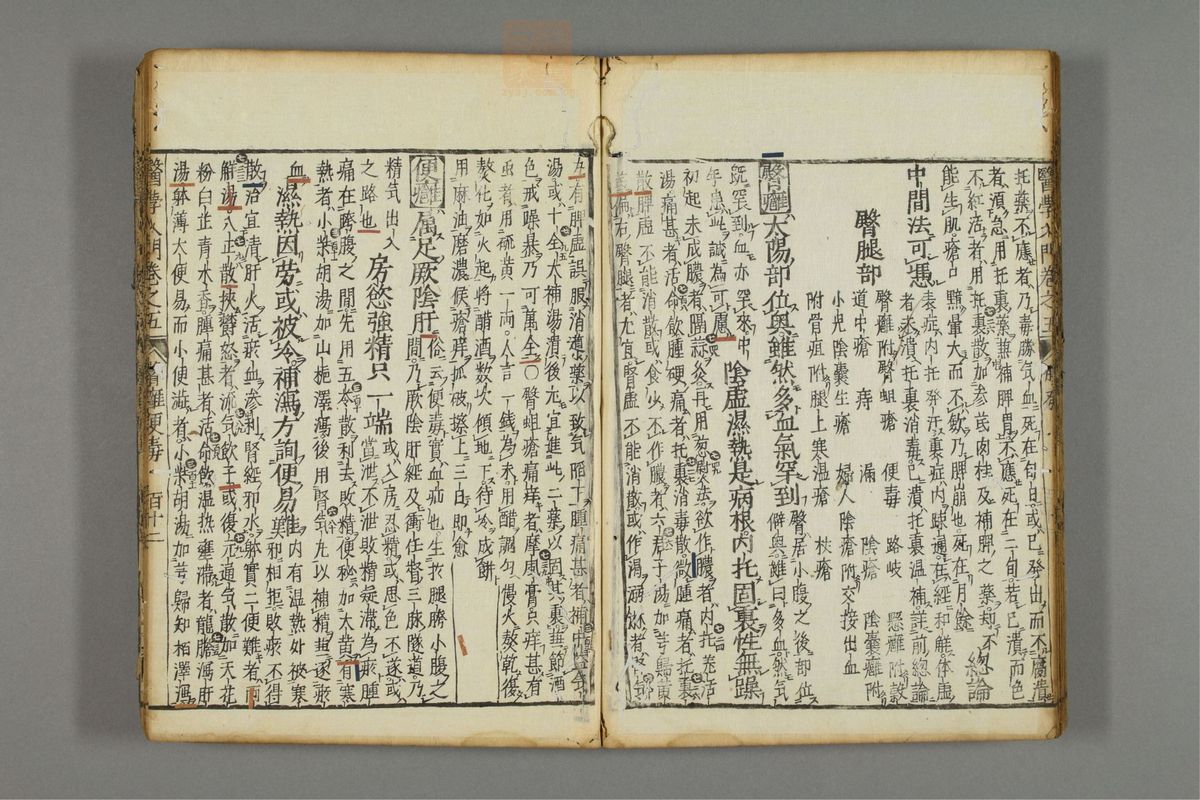 醫學入門卷之五
托藥不應者乃毒勝氣血死在旬日或已發出而不腐潰
者湏急用托裏藥兼補脾胃不應死在二旬若已潰而色
不紅活者用托裏散加參芪肉桂及補脾之藥如不
能生肌瘡口黯暈大而不歛乃脾崩也死在月餘 總論
中間法可憑 表症內托發汗裏症內踈通在經和解体虛
者未潰托裏消毒已潰托裏溫補詳前總論
臀腿部
臀癰附臀蛆瘡 便毒 路岐 懸癰附
道中瘡 痔 漏 陰瘡 陰囊癰附
小兒陰囊生瘡 婦人陰瘡附交接出血
附骨疽附腿上寒温瘡 杖瘡
臀癰 太陽部位與雖然多血氣罕到 臀居小腹之後部位
僻奧雖曰多血然氣
旣罕到血亦罕來中
年患此誠為可慮 陰虛濕熱是病根內托固裏性無躁
初起未成膿者隔蒜灸再用葱熨法欲作膿者內托羌活
湯痛甚者活命飲腫硬痛者托裏消毒散微腫痛者托裏
散脾虛不能消散或食少不作膿者六君子湯加芎歸黄
芪偏右臀腿者尤宜腎虛不能消散或作渴
五有脾虛誤服消導藥以致氣陷下腫痛甚者補中益氣
湯或十全大補湯潰後尤宜進此二藥以固其裏
色戒躁暴乃可萬全〇臀蛆瘡痛痒者摩風膏只痒甚有
虫者用硫黄一兩人言一錢為末用醋調勻慢火熬乾復
熬化如火起將醋酒数次傾地下待冷成餅
用麻油磨濃候瘡痒抓破搽上三日即愈
便癰 属足厥陰肝 俗云便毒實血疝也生於腿胯小腹之
間乃厥陰肝經及衝任督三脉隧道乃
精氣出入
之路也 房慾強精只一端 或入房忍精或思色不遂或
當泄不泄敗精凝滯為瘀腫
痛在胯腹之間先用五苓散利去敗精便秘加大黄有寒
熱者小柴胡湯加山梔澤瀉後用腎氣丸以補精兼逐瘀
血 濕熱因勞或被冷補瀉方詢便易難 內有温熱外被寒
與和相拒敗瘀不得
散治宜清肝火活瘀血滲利腎經邪水躰實二便難者
解湯八正散挾鬱怒者流氣飲子或復元通氣散加天花
粉白芷青木香腫痛甚者活命飲温热壅滯者龍膽瀉肝
湯躰薄大便易而小便澁者小柴胡湯加芎歸知栢澤瀉
醫學入門卷之五 臀癰便毒 百十二